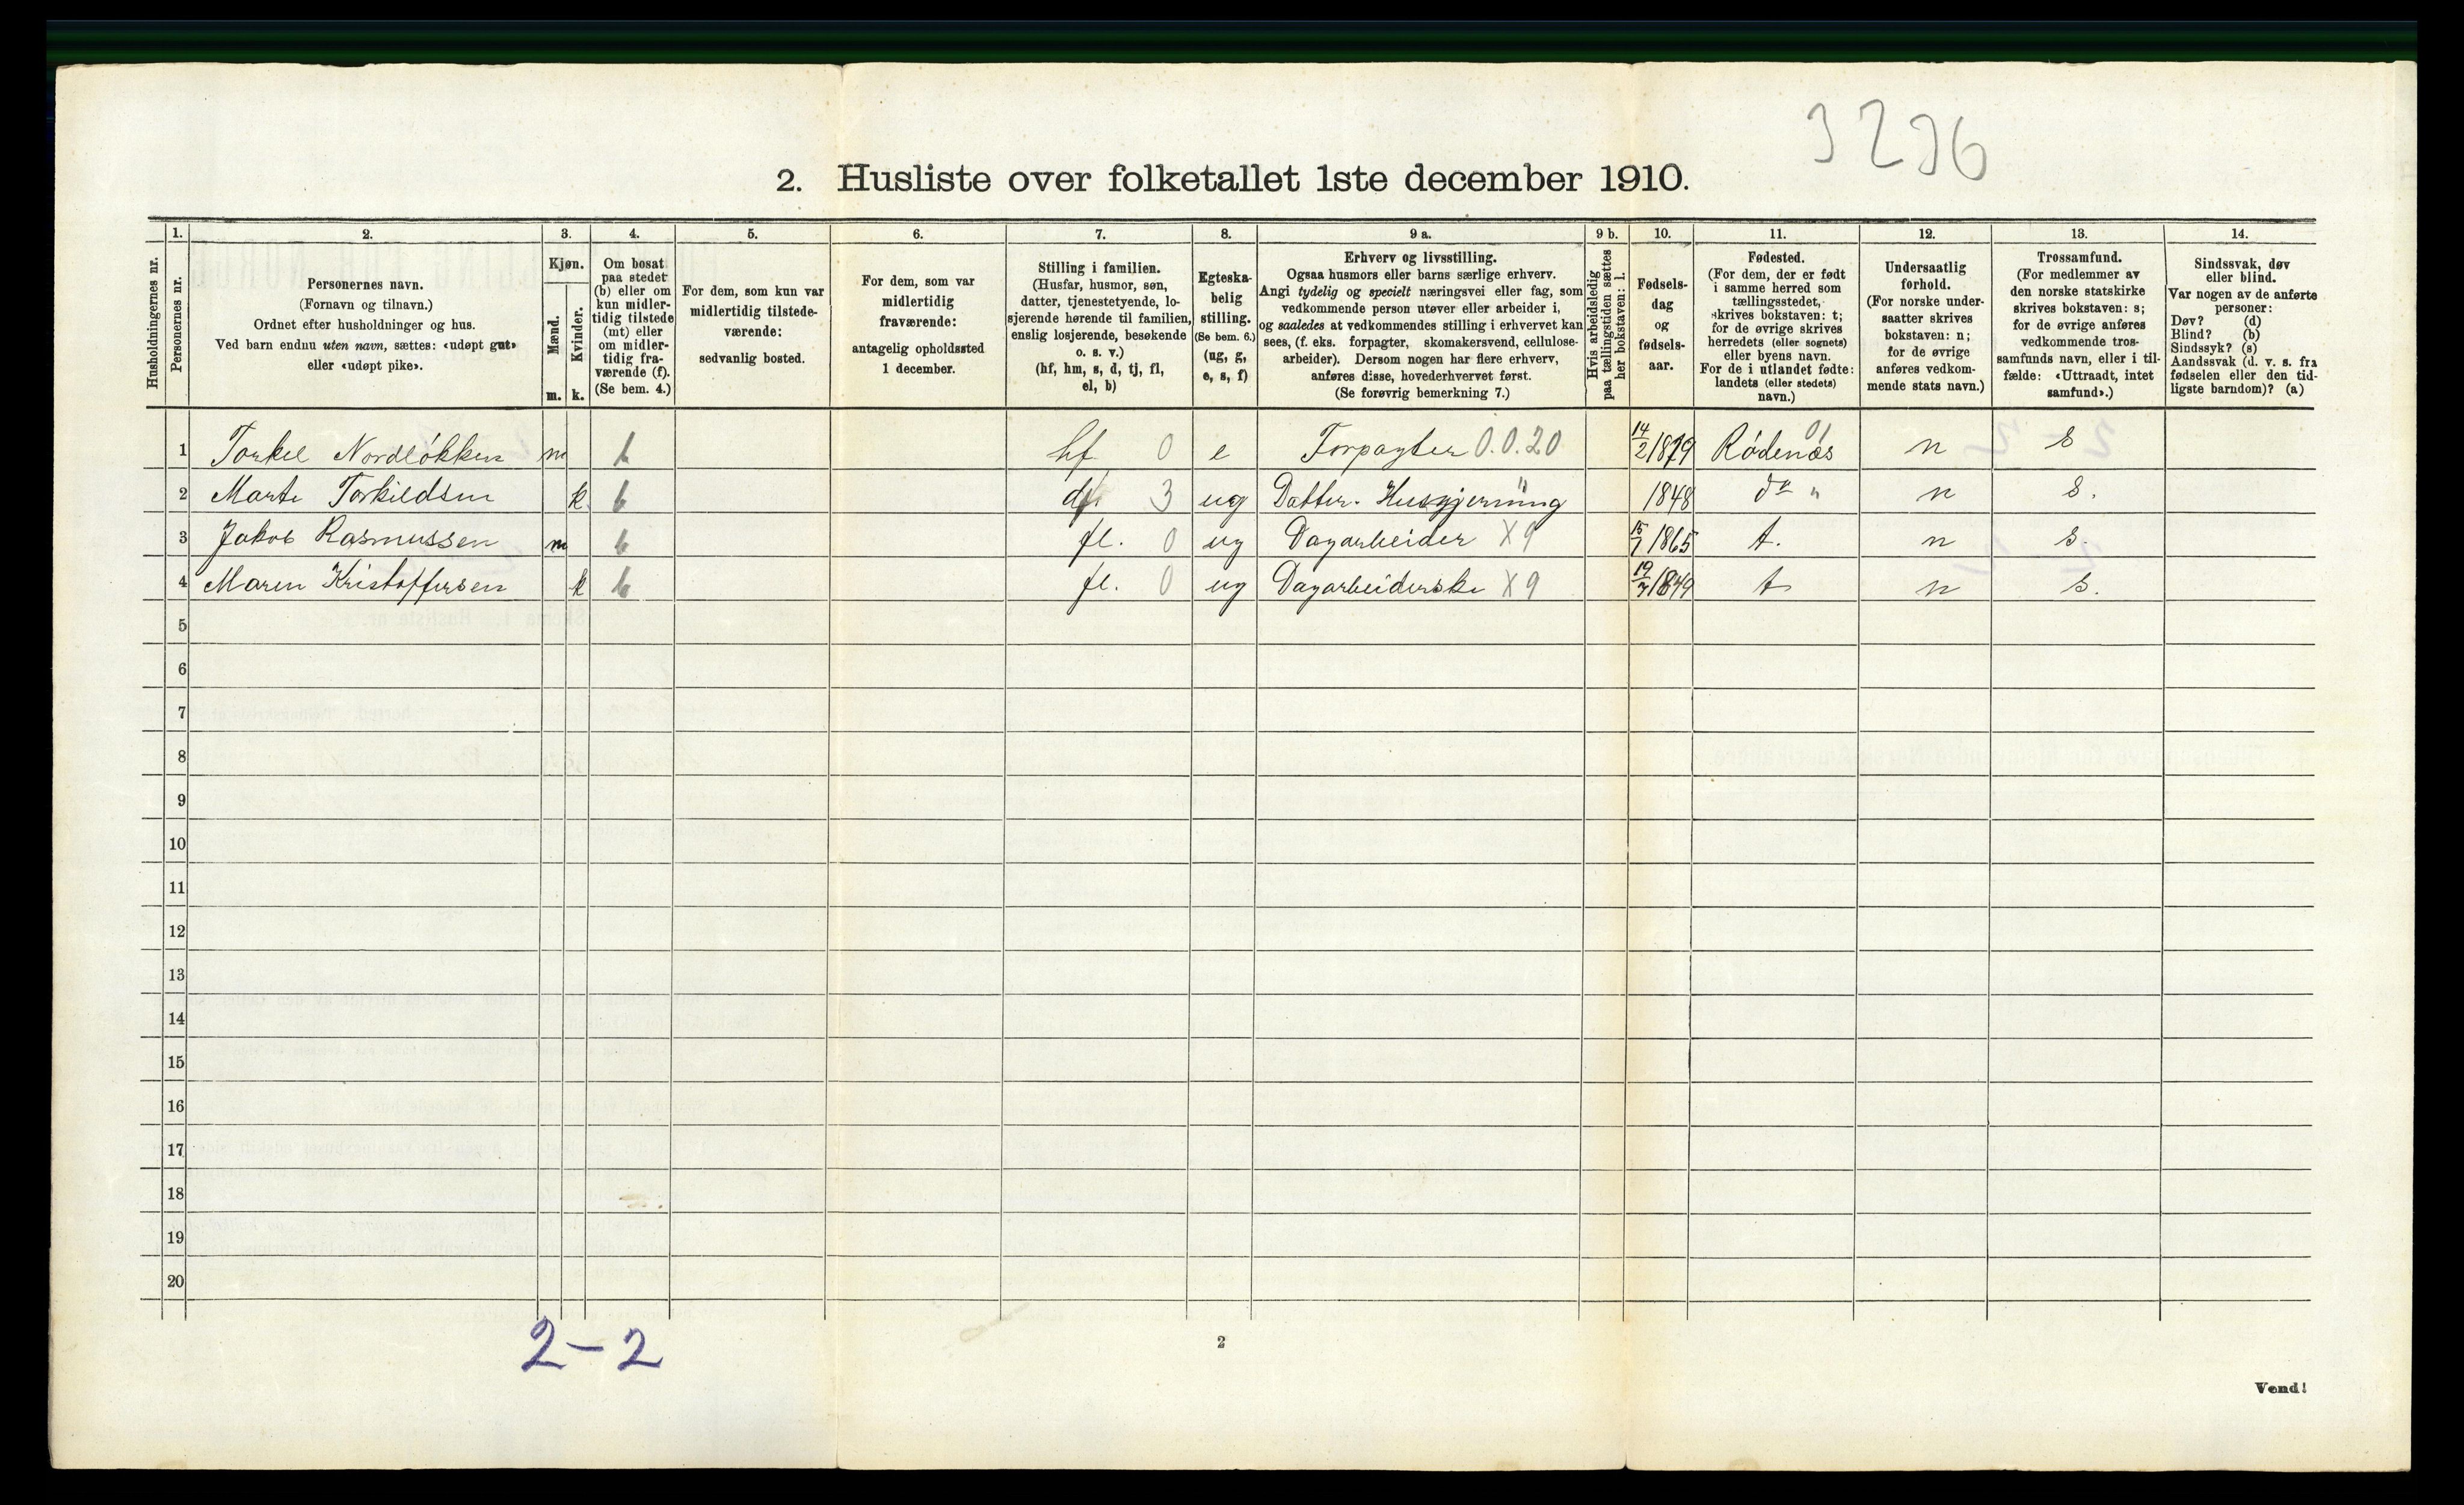 3236
2. Husliste over folketallet 1ste december 1910.
Husholdningernes nr.
1.
Personernes nr.
2.
Personernes navn.
(Fornavn og tilnavn.)
Ordnet efter husholdninger og hus.
Ved barn endnu uten navn, sættes: «udøpt gut»
eller «udøpt pike».
3.
Kjøn.
Mænd.
Kvinder.
m. k.
4.
Om bosat
paa stedet
(b) eller om
kun midler-
tidig tilstede
(mt) eller
om midler-
tidig fra-
værende (f).
(Se bem. 4.)
5.
For dem, som kun var
midlertidig tilstede-
værende:
sedvanlig bosted.
6.
For dem, som var
midlertidig
fraværende:
antagelig opholdssted
1 december.
7.
Stilling i familien.
(Husfar, husmor, søn,
datter, tjenestetyende, lo-
sjerende hørende til familien,
enslig losjerende, besøkende
o. s. v.)
(hf, hm, s, d, tj, fl,
el, b)
8.
Egteska-
belig
stilling.
(Se bem. 6.)
(ug, g,
e, s, f)
9 a.
Erhverv og livsstilling.
Ogsaa husmors eller barns særlige erhverv.
Angi tydelig og specielt næringsvei eller fag, som
vedkommende person utøver eller arbeider i,
og saaledes at vedkommendes stilling i erhvervet kan
sees, (f. eks. forpagter, skomakersvend, cellulose-
arbeider). Dersom nogen har flere erhverv,
anføres disse, hovederhvervet først.
(Se forøvrig bemerkning 7.)
9 b.
Hvis arbeidsledig
paa tællingstiden sættes
her bokstaven: l.
10.
Fødsels-
dag
og
fødsels-
aar.
11.
Fødested.
(For dem, der er født
i samme herred som
tællingsstedet,
skrives bokstaven: t;
for de øvrige skrives
herredets (eller sognets)
eller byens navn.
For de i utlandet fødte:
landets (eller stedets)
navn.)
12.
Undersaatlig
forhold.
(For norske under-
saatter skrives
bokstaven: n;
for de øvrige
anføres vedkom-
mende stats navn.)
13.
Trossamfund.
(For medlemmer av
den norske statskirke
skrives bokstaven: s;
for de øvrige anføres
vedkommende tros-
samfunds navn, eller i til-
fælde: «Uttraadt, intet
samfund».)
14.
Sindssvak, døv
eller blind.
Var nogen av de anførte
personer:
Døv? (d)
Blind? (b)
Sindssyk? (s)
Aandssvak (d. v. s. fra
fødselen eller den tid-
ligste barndom)? (a)
1 Torkel Nordløkken m b hf 0 e Forpagter 0.0.20 14/2 Rødenæs 01 n s
2 Marte Torkildsen k b 3 ug Datter. Husgjerning " 1848 do " n s.
3 Jakob Rasmussen m b fl. 0 ug Dagarbeider X9 15/7 1865 t. n s.
4 Maren Kristoffersen k b fl. 0 ug Dagarbeiderske X9 1849 t n s.
5
6
7
8
9
10
11
12
13
14
15
16
17
18
19
20
2-2
2
Vend!